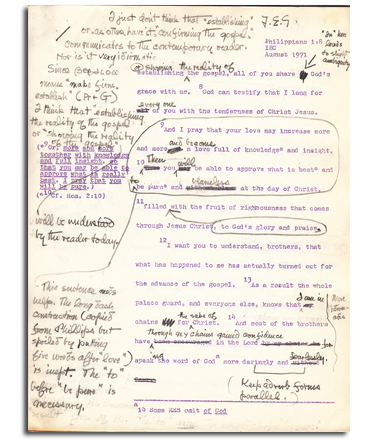 I just don't think that "establishing"
or, as others have it, confirming the gospel"
communicates to the contemporary reader.
Nor is it very idiomatic
F.E.G.
Philippians 1:8
IBC
August 1971
"In" here
leads
to slight
ambiguity
Since
means "make firm,
establish" (A+G)
I think that "establishing
the reality of the gospel"
or "showing the reality
of the gospel"
will be understood
by the reader today.
or showing the reality of
establishing the gospel, all of you share God's
grace with me. 8 God can testify that I long for
every one
all of you with the tenderness of Christ Jesus.
9 And I pray that your love may increase more
and more in love full of knowledge* and insight.
Then you will be able to approve what is best* and
be pure* and blameless at the day of Christ,
11 filled with the fruit of righteousness that comes
through Jesus Christ, to God's glory and praise.
12 I want you to understand, brothers, that
what has happened to me has actually turned out for
the advance of the gospel. 13 As a result the whole
palace guard, and everyone else, knows that I am in
chains for the sake of Christ. 14 And most of the brothers
through my chains gained confidence
have been encouraged in the Lord
speak the word of God* more daringly and fearlessly.
(Keep adverb forms
parallel.)
a14 Some MSS omit of God
("Or: more and more
together with knowledge
and full insight, so
that you may be able to
approve what is really
best. I pray that you
will be pure.)
(*cf. Rom. 2:18)
This sentence needs
help. The long dash
construction (copied
from Phillips but
spoiled by putting
five words after 'love')
is inept. The "to"
before "be pure" is
necessary.
More